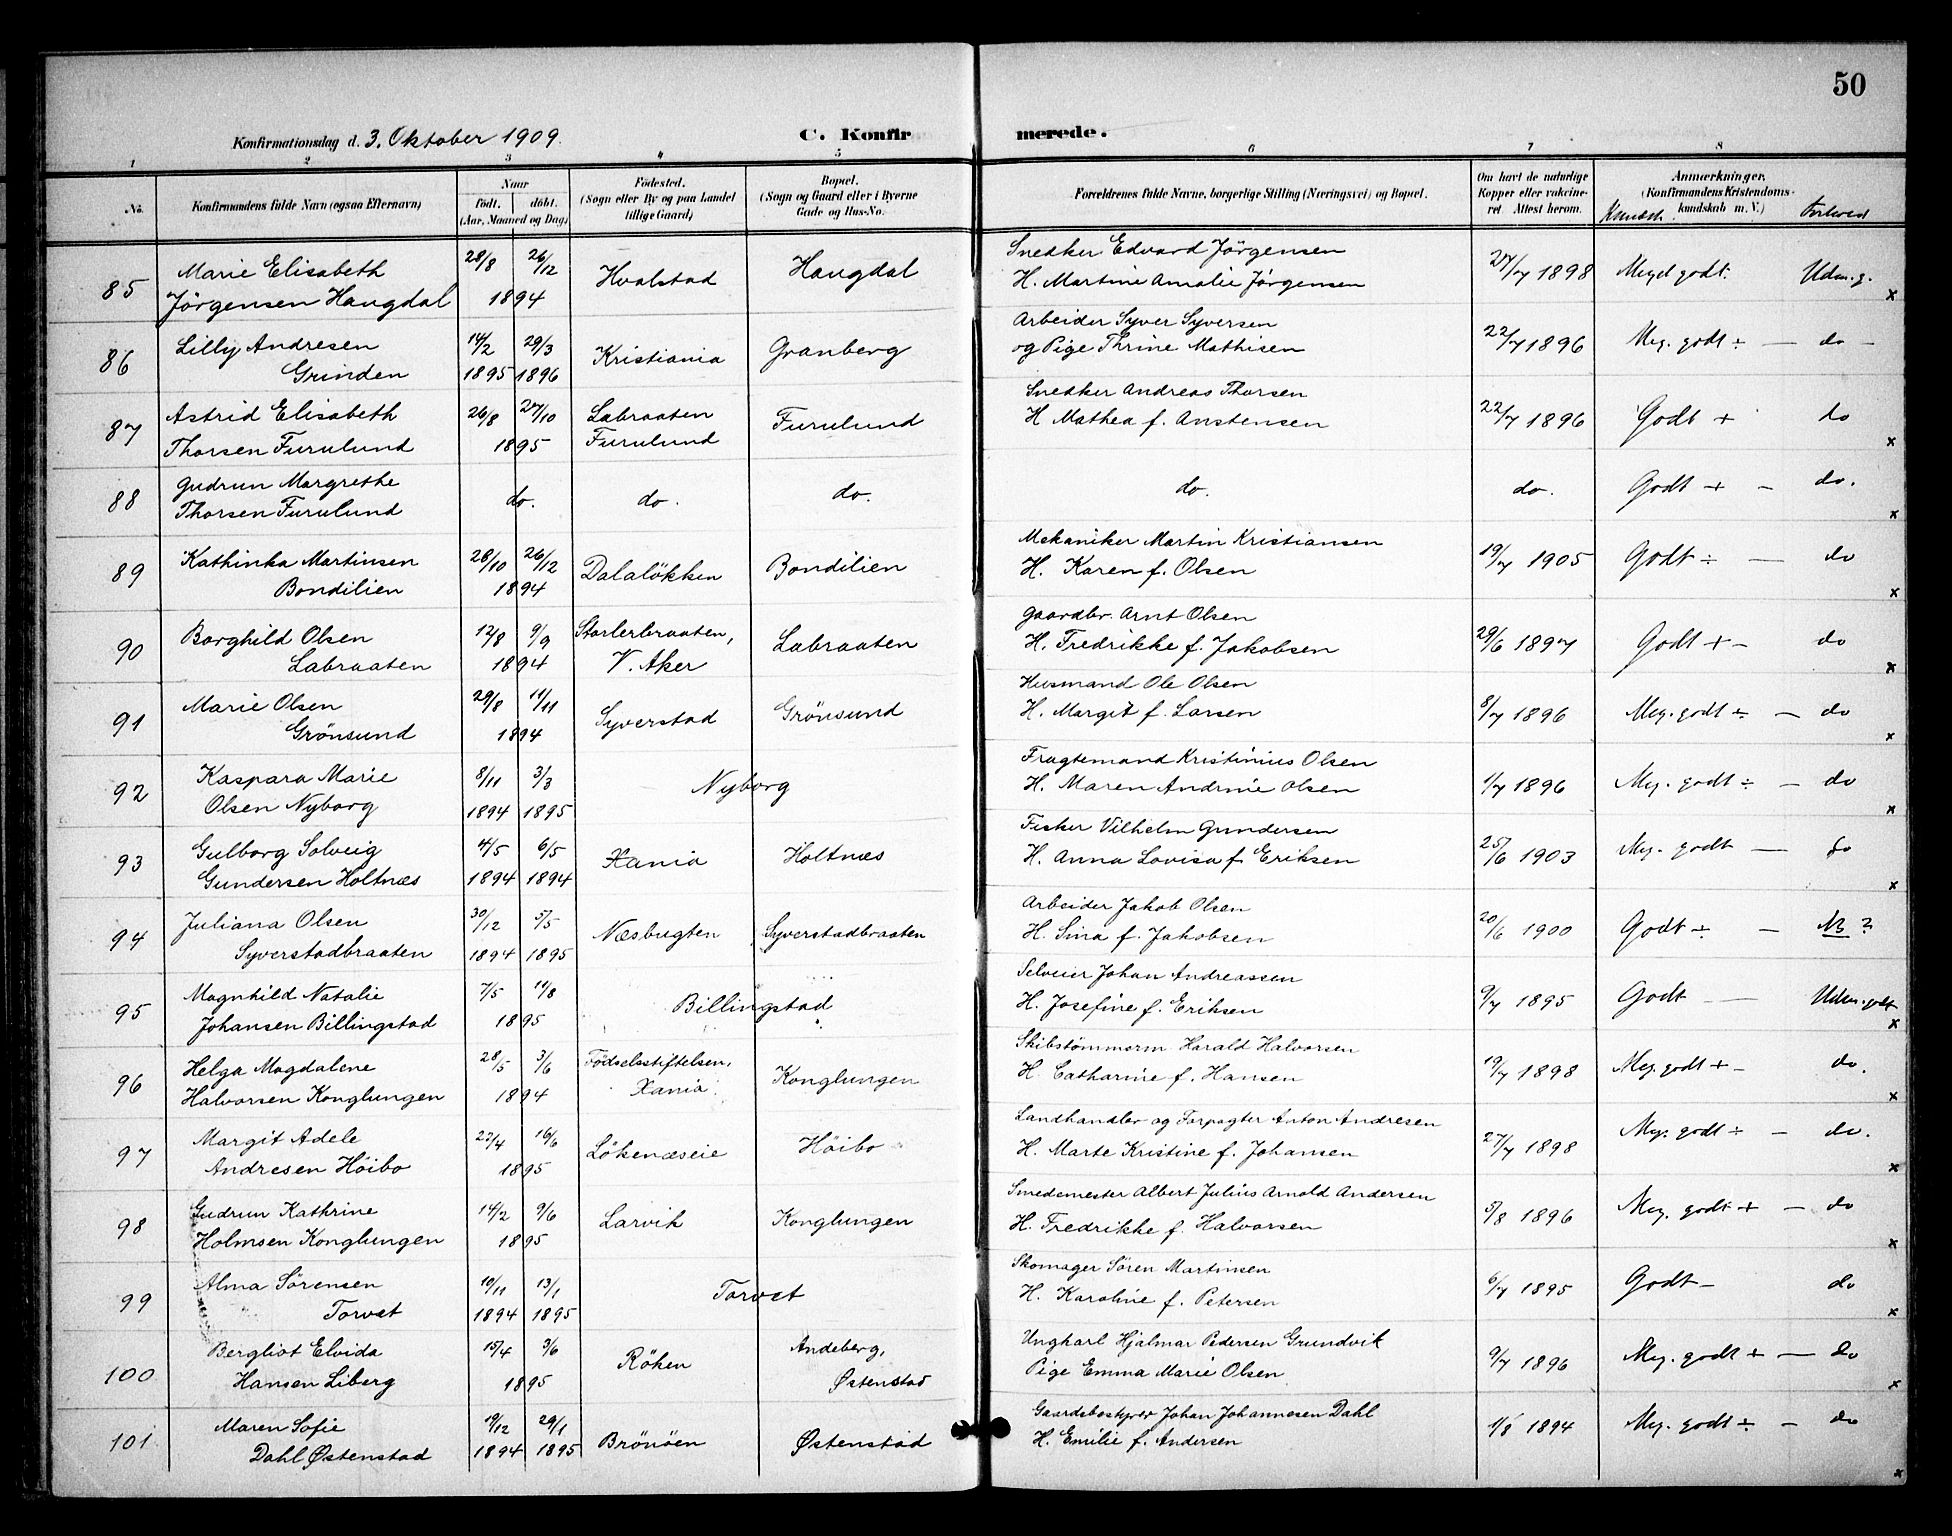 50
Konfirmationsdag d. 3. Oktober 1909.
C. Konfirmerede.
1 2 3 4 5 6 7 8
No. Konfirmandens fulde Navn (ogsaa Efternavn) Naar født. døbt. (Aar, Maaned og Dag) Fødested. (Sogn eller By og paa Landet tillige Gaard) Bopæl. (Sogn og Gaard eller i Byerne Gade og Hus-No.) Forældrenes fulde Navne, borgerlige Stilling (Næringsvei) og Bopæl. Om havt de naturlige Kopper eller vakcineret. Attest herom. Anmærkninger. (Konfirmandens Kristendomskundskab m. V.) Kundsk. Forhold
85 Marie Elisabeth 28/8 26/12 Hvalstad Haugdal Snedker Edvard Jörgensen 27/7 1898 Meget godt. Udm. g.
Jörgensen Haugdal 1894 H. Martine Amalie Jörgensen x
86 Lilly Andresen 14/2 29/3 Kristiania Granberg Arbeider Syver Syversen 22/7 1896 Meg. godt ÷ — do —
Grinden 1895 1896 og Pige Thrine Mathisen
87 Astrid Elisabeth 26/8 27/10 Labraaten Furulund Snedker Andreas Thorsen 22/7 1896 Godt + do
Thorsen Furulund 1895 Furulund H Mathea f. Anstensen x
88 Gudrun Margrethe do. do. do. do. do. Godt + - do.
Thorsen Furulund x
89 Kathinka Martinsen 28/10 26/12 Dalalökken Bondilien Mekaniker Martin Kristiansen 19/7 1905 Godt ÷ — do
Bondilien 1894 H. Karen f. Olsen x
90 Borghild Olsen 12/8 9/9 Labraaten Gaardbr. Arnt Olsen 29/6 1897 Godt + - do
Labraaten 1894 V. Aker H. Fredrikke f. Jakobsen x
91 Marie Olsen 29/8 11/11 Syverstad Grönsund Husmand Ole Olsen 8/7 1896 Meg. godt ÷ — do
Grönsund 1894 H. Margit f. Larsen x
92 Kaspara Marie 8/11 3/3 Nyborg Fragtemand Kristinius Olsen 1/7 1896 Meg. godt ÷ — do
Olsen Nyborg 1894 1895 H. Maren Andrine Olsen x
93 Gulborg Solveig 4/5 6/5 Xania Holtnæs Fisker Vilhelm Gundersen 25/6 1903 Meg. godt — do
Gundersen Holtnæs 1894 1894 H. Anna Lovisa f. Eriksen x
94 Juliana Olsen 30/12 5/5 Næsbugten Syverstadbraaten Arbeider Jakob Olsen 20/6 1900 Godt ÷ — NB ?
Syverstadbraaten 1894 1895 H. Sina f. Jakobsen
95 Magnhild Natalie 7/5 11/8 Billingstad Selveier Johan Andreassen 9/7 1895 Godt — Udm. godt
Johansen Billingstad 1895 H. Josefine f. Eriksen x
96 Helga Magdalene 28/5 3/6 Födselsstiftelsen, Konglungen Skibstömmerm Harald Halvorsen 19/7 1898 Meg. godt + - do.
Halvorsen Konglungen 1894 Xania H. Catharine f. Hansen x
97 Margit Adele 22/4 16/6 Lökenæseie Höibo Landhandler og Forpagter Anton Andresen 27/7 1898 Meg. godt ÷ — do.
Andresen Höibo 1895 H. Marte Kristine f. Johansen x
98 Gudrun Kathrine 14/2 9/6 Larvik Konglungen Smedemester Albert Julius Arnold Andersen 5/8 1896 Meg. godt + - do
Holmsen Konglungen 1895 H. Fredrikke f. Halvorsen x
99 Alma Sörensen 10/11 13/1 Torvet Skomager Sören Martinsen 6/7 1895 Godt - do
Torvet 1894 1895 H. Karoline f. Petersen x
100 Bergliot Elvida 15/4 3/6 Röken Andeberg, Ungkarl Hjalmar Pedersen Grundvik 9/7 1896 Meg. godt + — do
Hansen Liberg 1895 Østenstad Pige Emma Marie Olsen x
101 Maren Sofie 19/12 29/1 Brönöen Østenstad Gaardsbestyrer Johan Johannesen Dahl 1/8 1894 Meg. godt ÷ - do
Dahl Østenstad 1894 1895 H. Emilie f. Andersen x